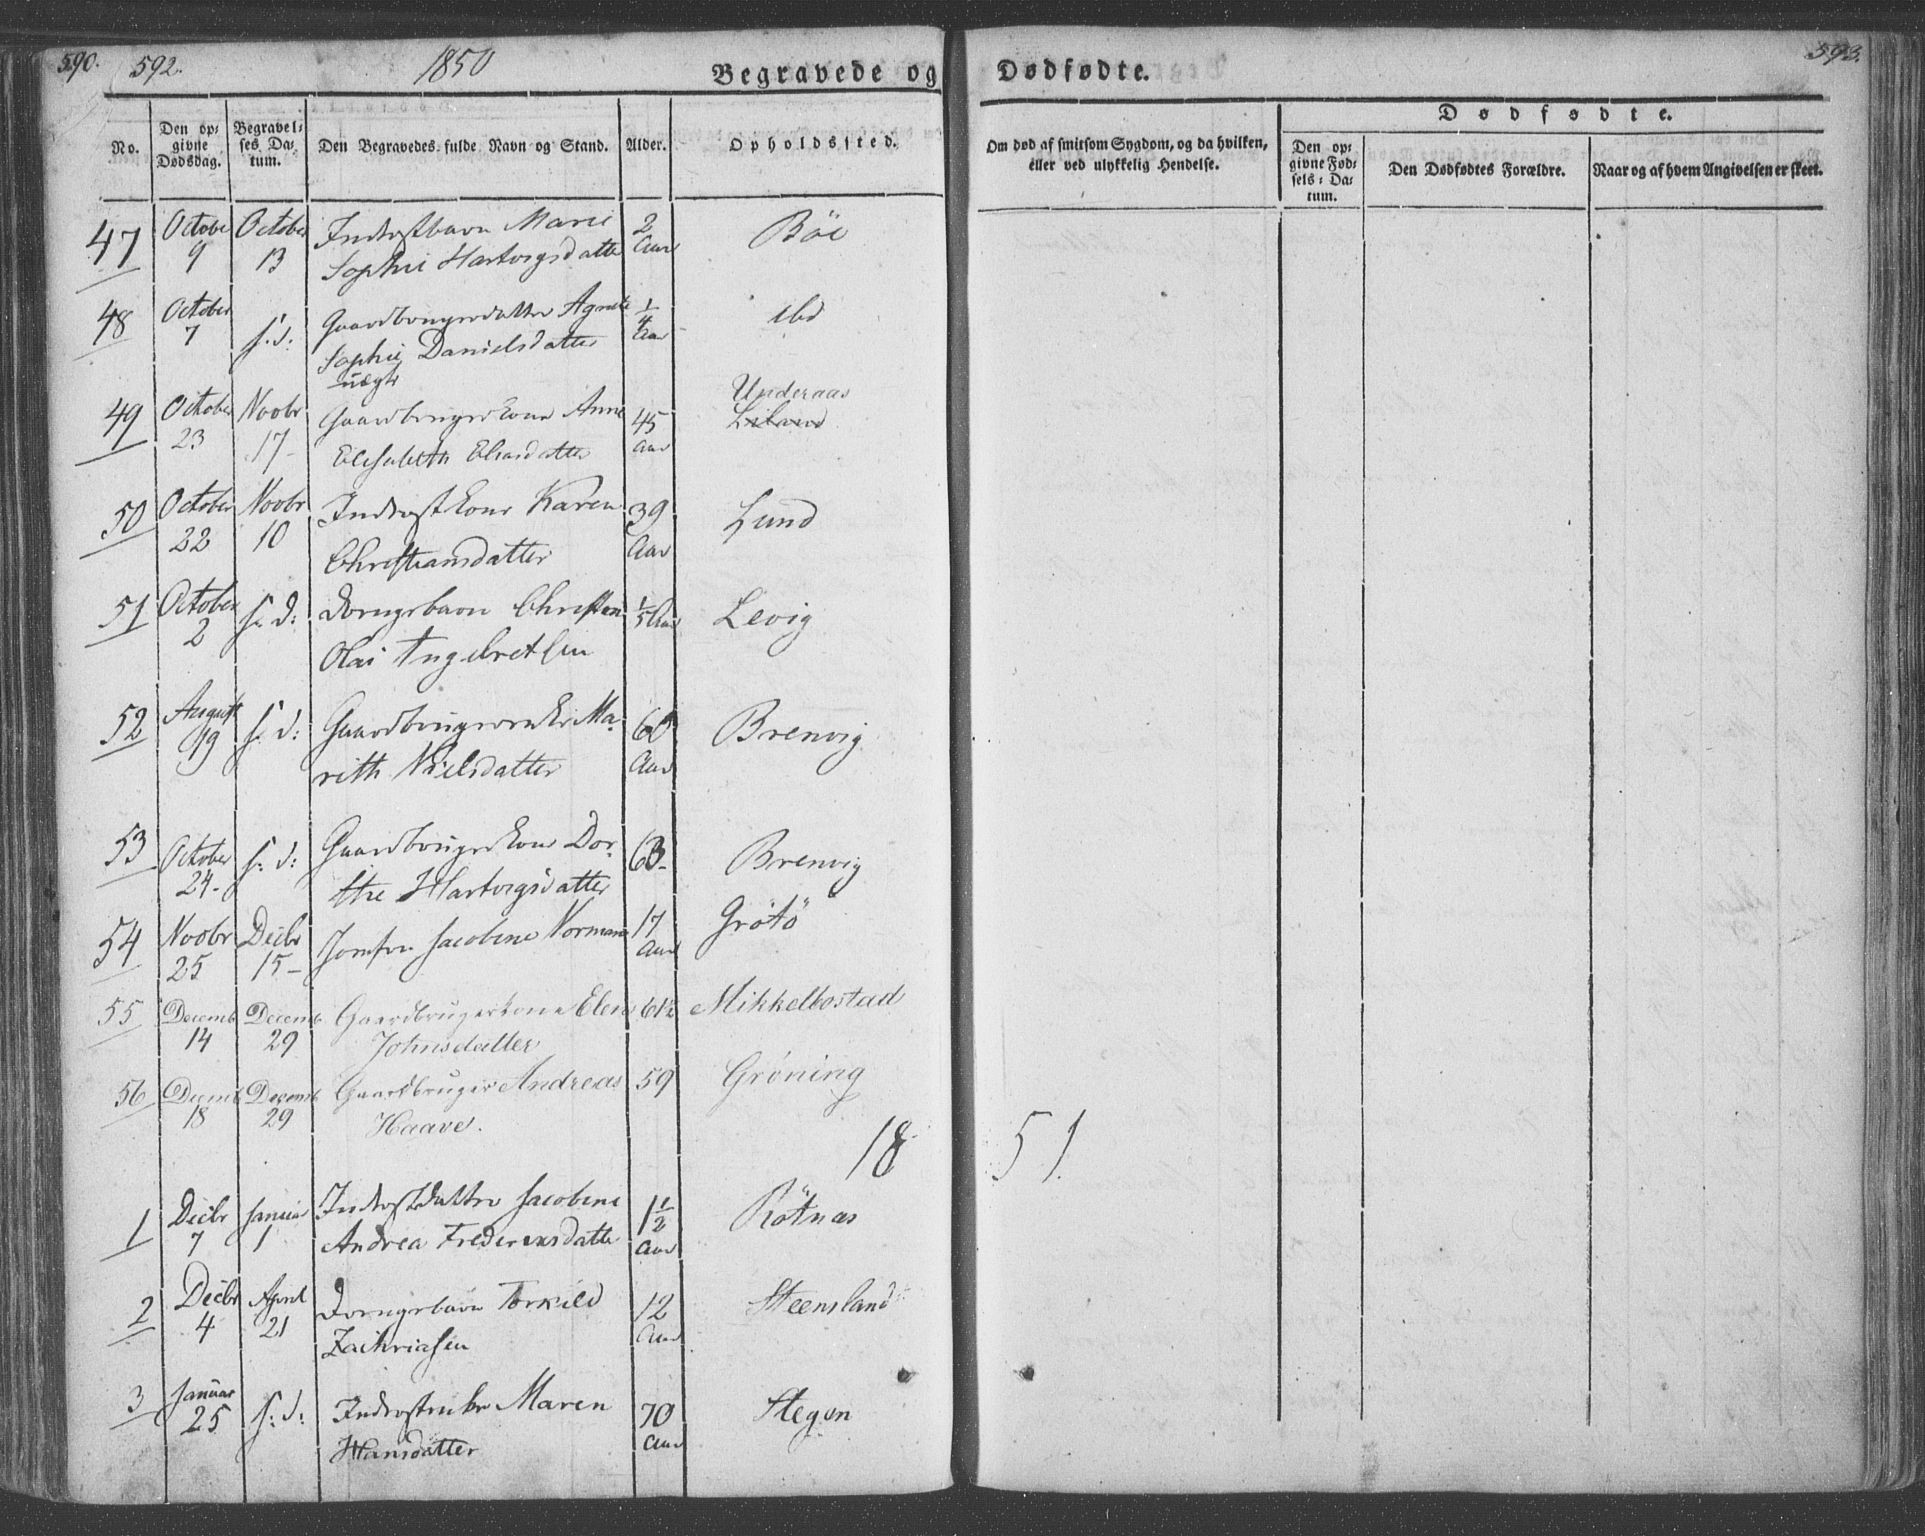 590. 592. 1850
Begravede og Dødfødte.
593.
No.
Den opgivne Dødsdag.
Begravelses Datum.
Den Begravedes fulde Navn og Stand.
Alder.
Opholdssted.
Om død af smitsom Sygdom, og da hvilken, eller ved ulykkelig Hendelse.
Dødfødte.
Den opgivne Fødsels-Datum.
Den Dødfødtes Forældre.
Naar og af hvem Angivelsen er skeet.
47 October October Inderstbarn Marie 2 Böe
9 13 Sophie Hartvigsdatter Aar
48 October s. d: Gaardbrugerdatter Agnete 1/4 ibd
7 Sophie Danielsdatter Aar
uægte
49 October Novbr Gaardbrugerkone Anne 45 Underaas
23 17 Elisabeth Eliasdatter Aar Liland
50 October Novbr Inderstkone Karen 39 Lund
22 10 Christiansdatter Aar
51 October s. d: Drengebarn Christen 1/5 Aar Levig
2 Olai Ingebretsen
52 August s. d: Gaardbrugerenke Ma- 60 Brenvig
19 rith Nielsdatter Aar
53 October s. d: Gaardbrugerkone Dor- 63 Brenvig
24 the Hartvigsdatter
54 Novbr Decbr Jomfru Jacobine Normann 17 Grötö
25 15 Aar
55 Decemb Decemb Gaardbrugerkone Elen 61½ Mikkelbostad
14 29 Johnsdatter
56 Decemb Decemb Gaardbruger Andreas 59 Gröning
18 29 Haave.
18 51.
1 Decbr Januar Inderstdatter Jacobine 1½ Rötnæs
7 1 Andrea Frederiksdatter Aar
2 Decbr April Drengebarn Torkild 12 Steensland
4 21 Zachriasen Aar
3 Januar s: d: Inderstenke Maren 70 Stegen
25 Hansdatter Aar